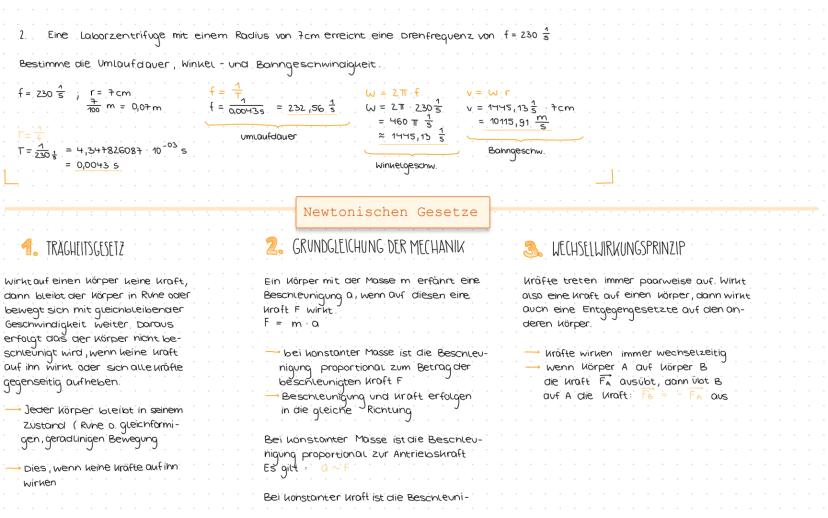 2. Eine Laborzentrifuge mit einem Radius von 7cm erreicht eine Drehfrequenz von f = 230 1/s
Bestimme die Umlaufdauer, Winkel - und Bahngeschwindigkeit.
f = 230 1/s ; r = 7cm
7/100 m = 0,07m
T = 1/f
T = 1/(230 1/s) = 4,347826087 · 10^-03 s
= 0,0043 s
f = 1/T
f = 1/0,0043s = 232,56 1/s
Umlaufdauer
W = 2π · f
W = 2π · 230 1/s
= 460 π 1/s
≈ 1445,13 1/s
Winkelgeschw.
v = W · r
v = 1445,13 1/s · 7cm
= 10115,91 m/s
Bahngeschw.
Newtonischen Gesetze
1. TRÄGHEITSGESETZ
Wirkt auf einen Körper keine Kraft,
dann bleibt der Körper in Ruhe oder
bewegt sich mit gleichbleibender
Geschwindigkeit weiter. Daraus
erfolgt das der Körper nicht be-
schleunigt wird, wenn keine Kraft
auf ihn wirkt oder sich alle Kräfte
gegenseitig aufheben.
→ Jeder Körper bleibt in seinem
Zustand (Ruhe o. gleichförmi-
gen, geradlinigen Bewegung
→ Dies, wenn keine Kräfte auf ihn
wirken
2. GRUNDGLEICHUNG DER MECHANIK
Ein Körper mit der Masse m erfährt eine
Beschleunigung a, wenn auf diesen eine
Kraft F wirkt.
F = m · a
→ bei konstanter Masse ist die Beschleu-
nigung proportional zum Betrag der
beschleunigten Kraft F
→ Beschleunigung und Kraft erfolgen
in die gleiche Richtung
Bei konstanter Masse ist die Beschleu-
nigung proportional zur Antriebskraft
Es gilt: a ~ F
Bei konstanter Kraft ist die Beschleuni-
3. WECHSELWIRKUNGSPRINZIP
Kräfte treten immer paarweise auf. Wirkt
also eine Kraft auf einen Körper, dann wirkt
auch eine Entgegengesetzte auf den an-
deren Körper.
→ Kräfte wirken immer wechselzeitig
→ wenn Körper A auf Körper B
die Kraft F⃗A ausübt, dann übt B
auf A die Kraft: F⃗B = - F⃗A aus